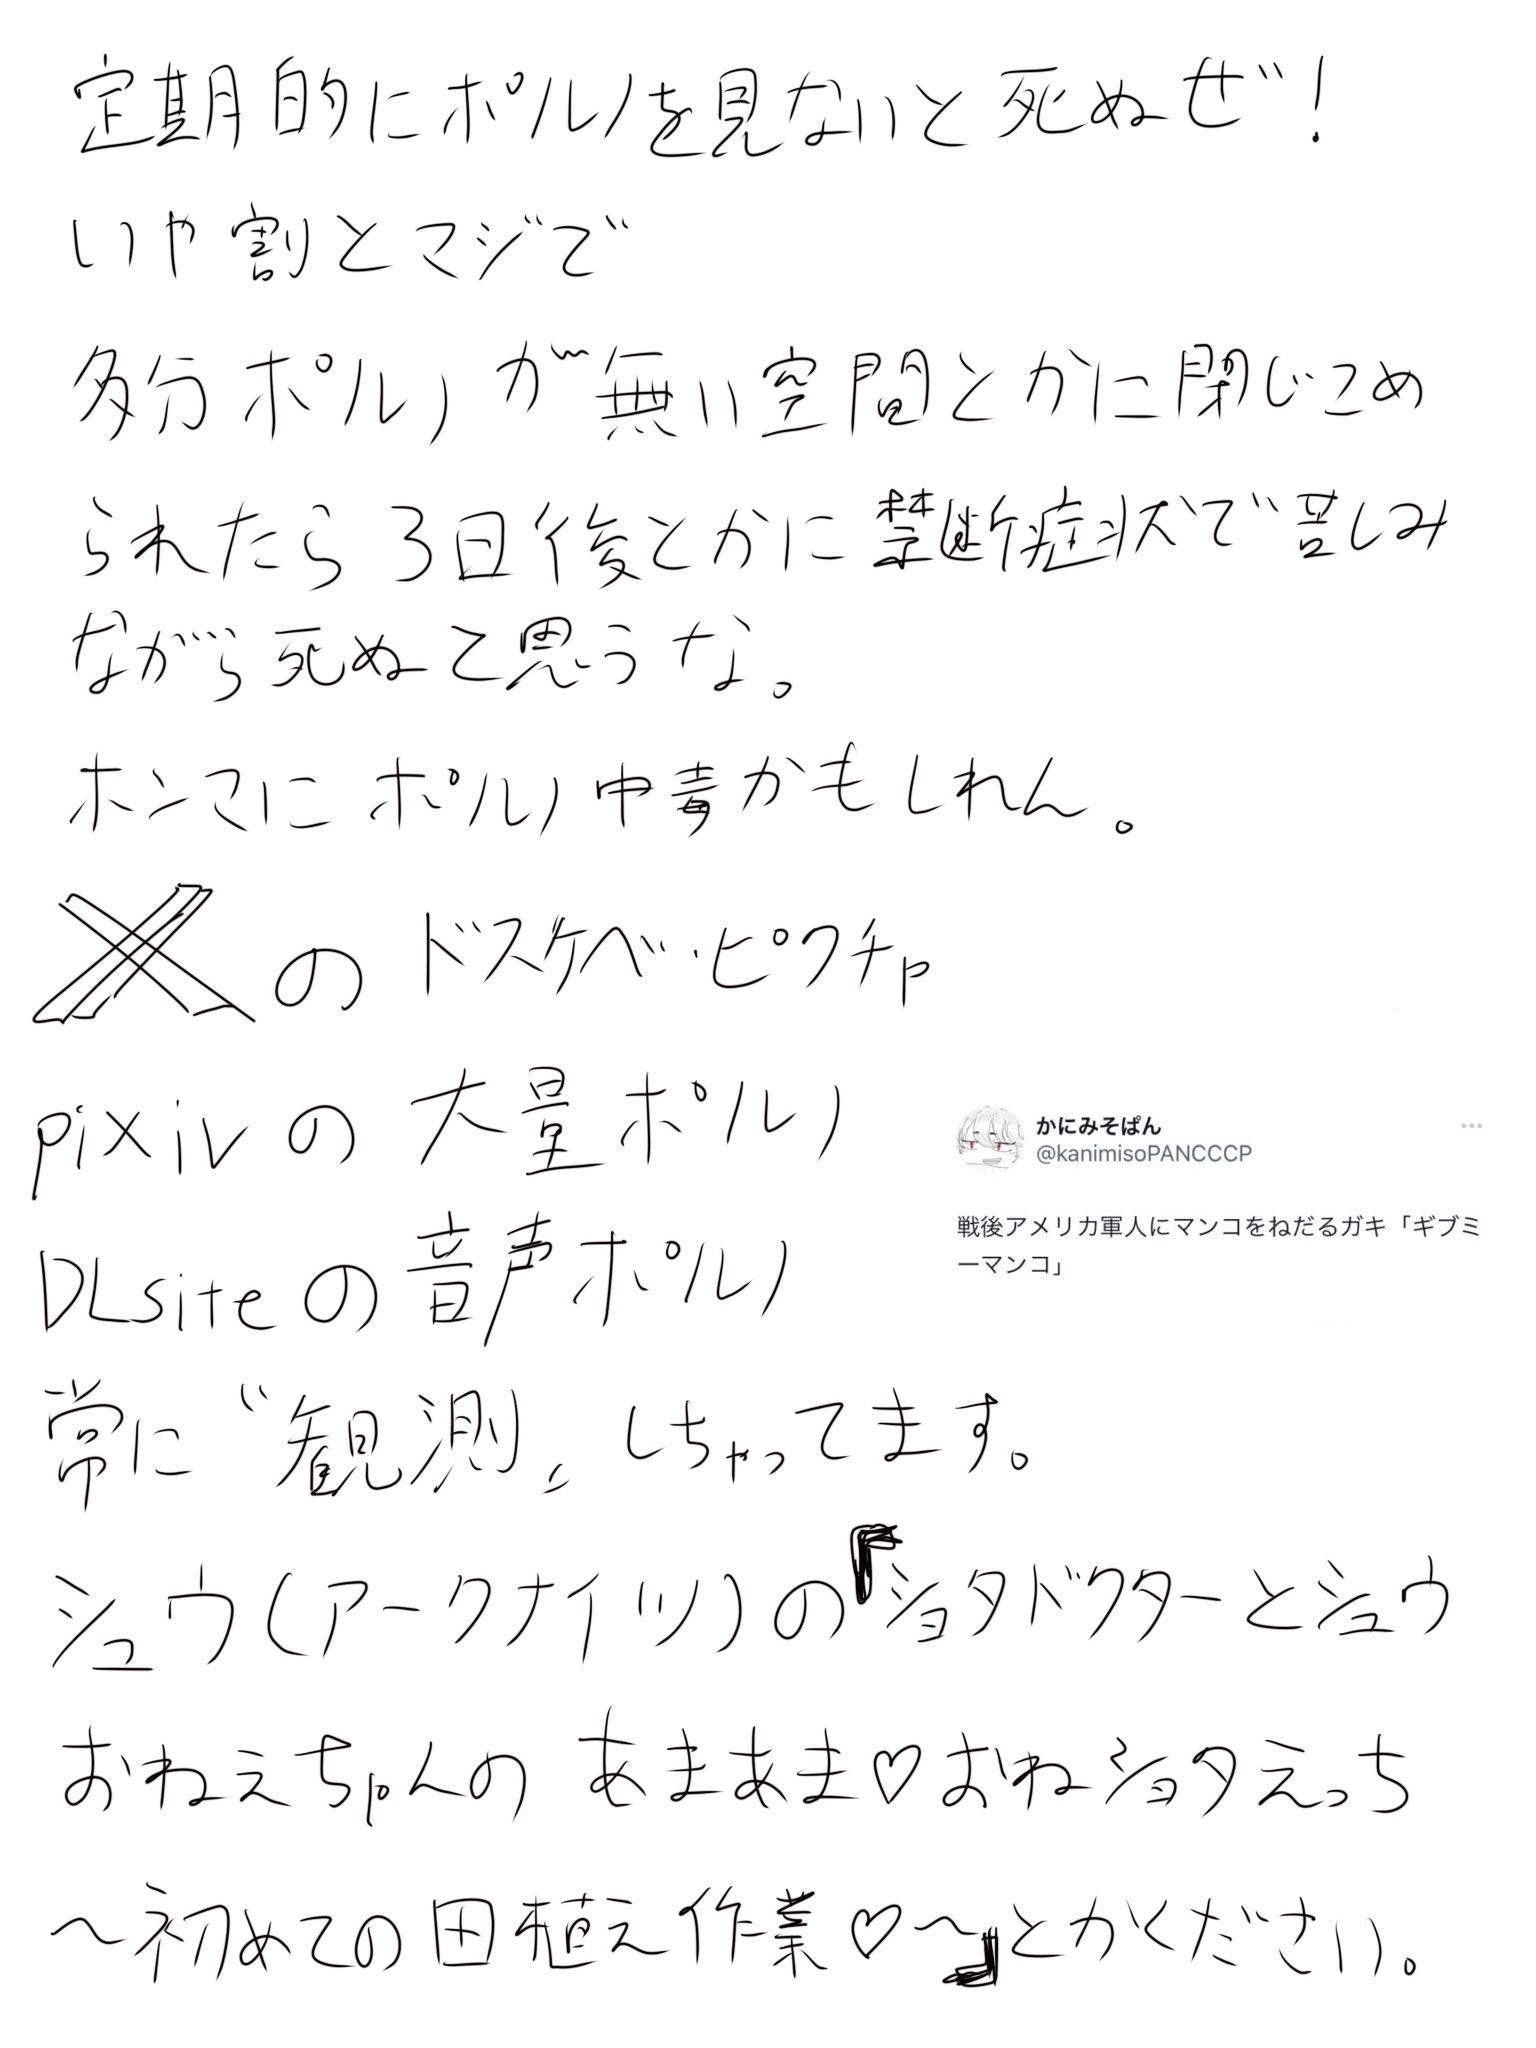 定期的にポルノを見ないと死ぬぜ!
いや割とマジで
多分ポルノが無い空間とかに閉じこめ
られたら3日後とかに禁断症状で苦しみ
ながら死ぬと思うな。
ホンマにポルノ中毒かもしれん。
Xのドスケベ・ピクチャ
pixivの大量ポルノ
DLsiteの音声ポルノ
常に〝観測〟しちゃってます。
シュウ(アークナイツ)の『ショタドクターとシュウ
おねえちゃんのあまあま♡おねショタえっち
〜初めての田植え作業♡〜』とかください。
かにみそぱん
@kanimisoPANCCCP
戦後アメリカ軍人にマンコをねだるガキ「ギブミ
ーマンコ」